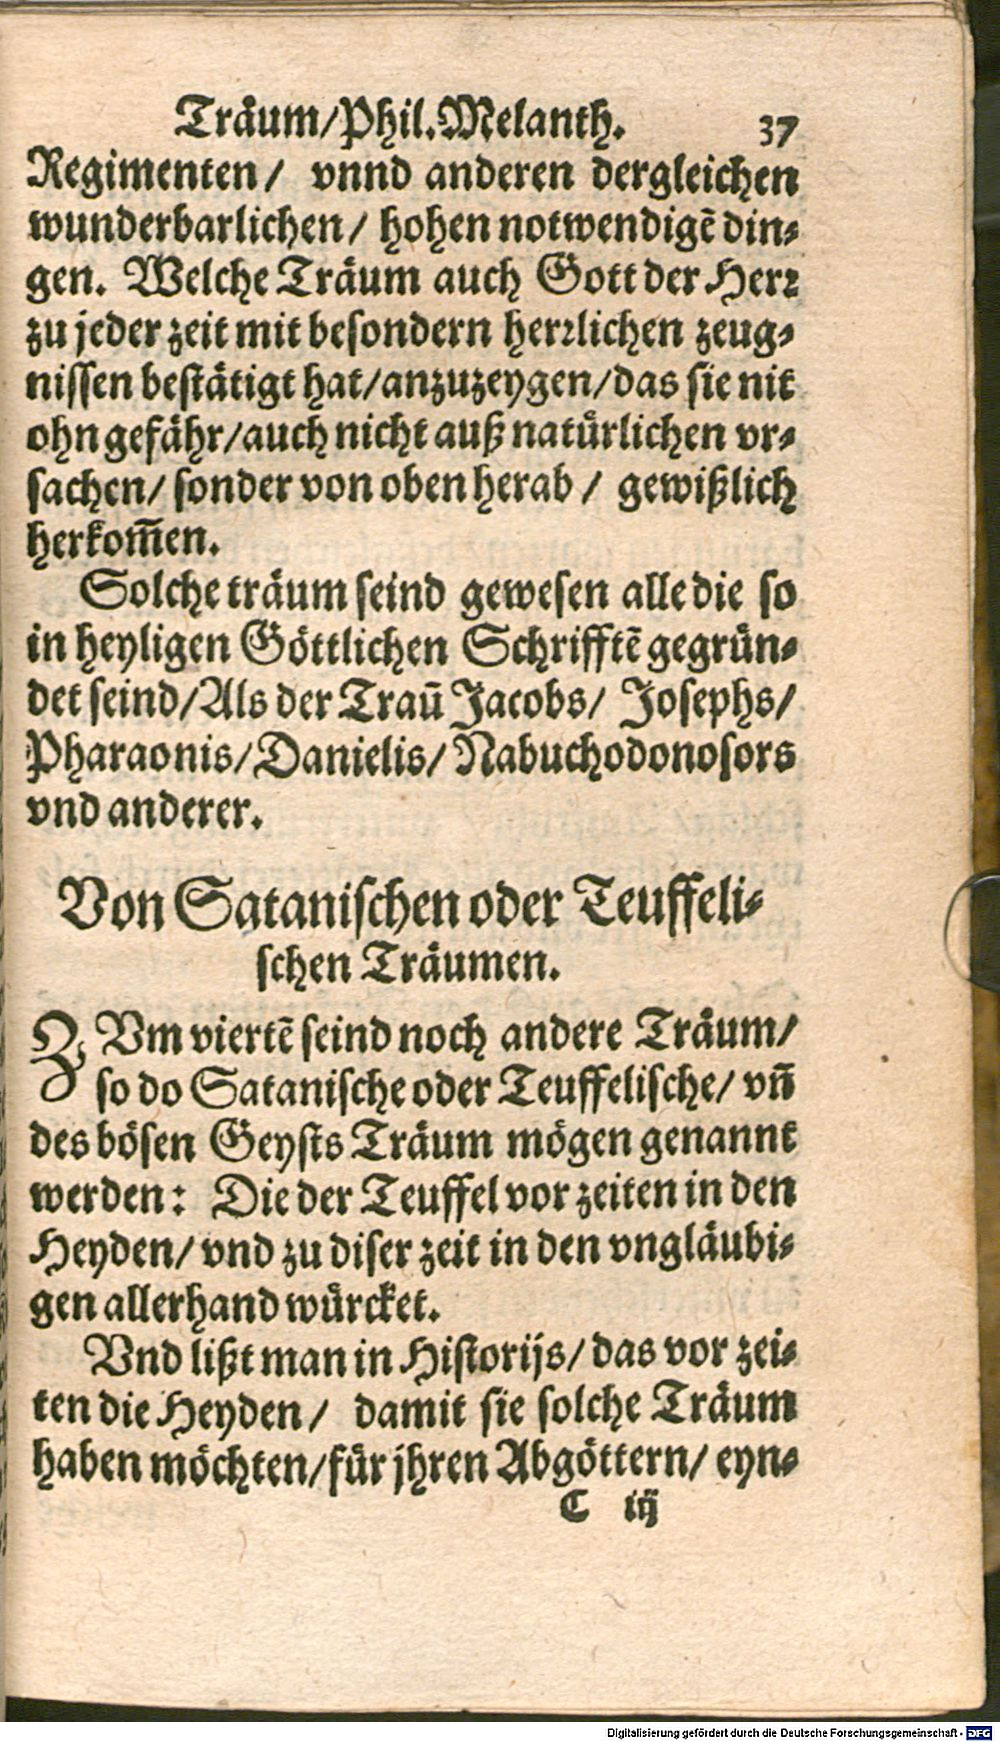 Träum/Phil.Melanth. 37
Regimenten/ vnnd anderen dergleichen
wunderbarlichen/ hohen notwendigē din-
gen. Welche Träum auch Gott der Herr
zu jeder zeit mit besondern herrlichen zeug-
nissen bestätigt hat/anzuzeygen/das sie nit
ohn gefähr/auch nicht auß natürlichen vr-
sachen/ sonder von oben herab/ gewißlich
herkom̄en.
Solche träum seind gewesen alle die so
in heyligen Göttlichen Schrifftē gegrün-
det seind/Als der Traū Jacobs/ Josephs/
Pharaonis/Danielis/Nabuchodonosors
vnd anderer.
Von Satanischen oder Teuffeli-
schen Träumen.
ZVm viertē seind noch andere Träum/
so do Satanische oder Teuffelische/ vn̄
des bösen Geysts Träum mögen genannt
werden: Die der Teuffel vor zeiten in den
Heyden/ vnd zu diser zeit in den vngläubi-
gen allerhand würcket.
Vnd lißt man in Historijs/das vor zei-
ten die Heyden/ damit sie solche Träum
haben möchten/für jhren Abgöttern/ eyn-
C iij
Digitalisierung gefördert durch die Deutsche Forschungsgemeinschaft - DFG